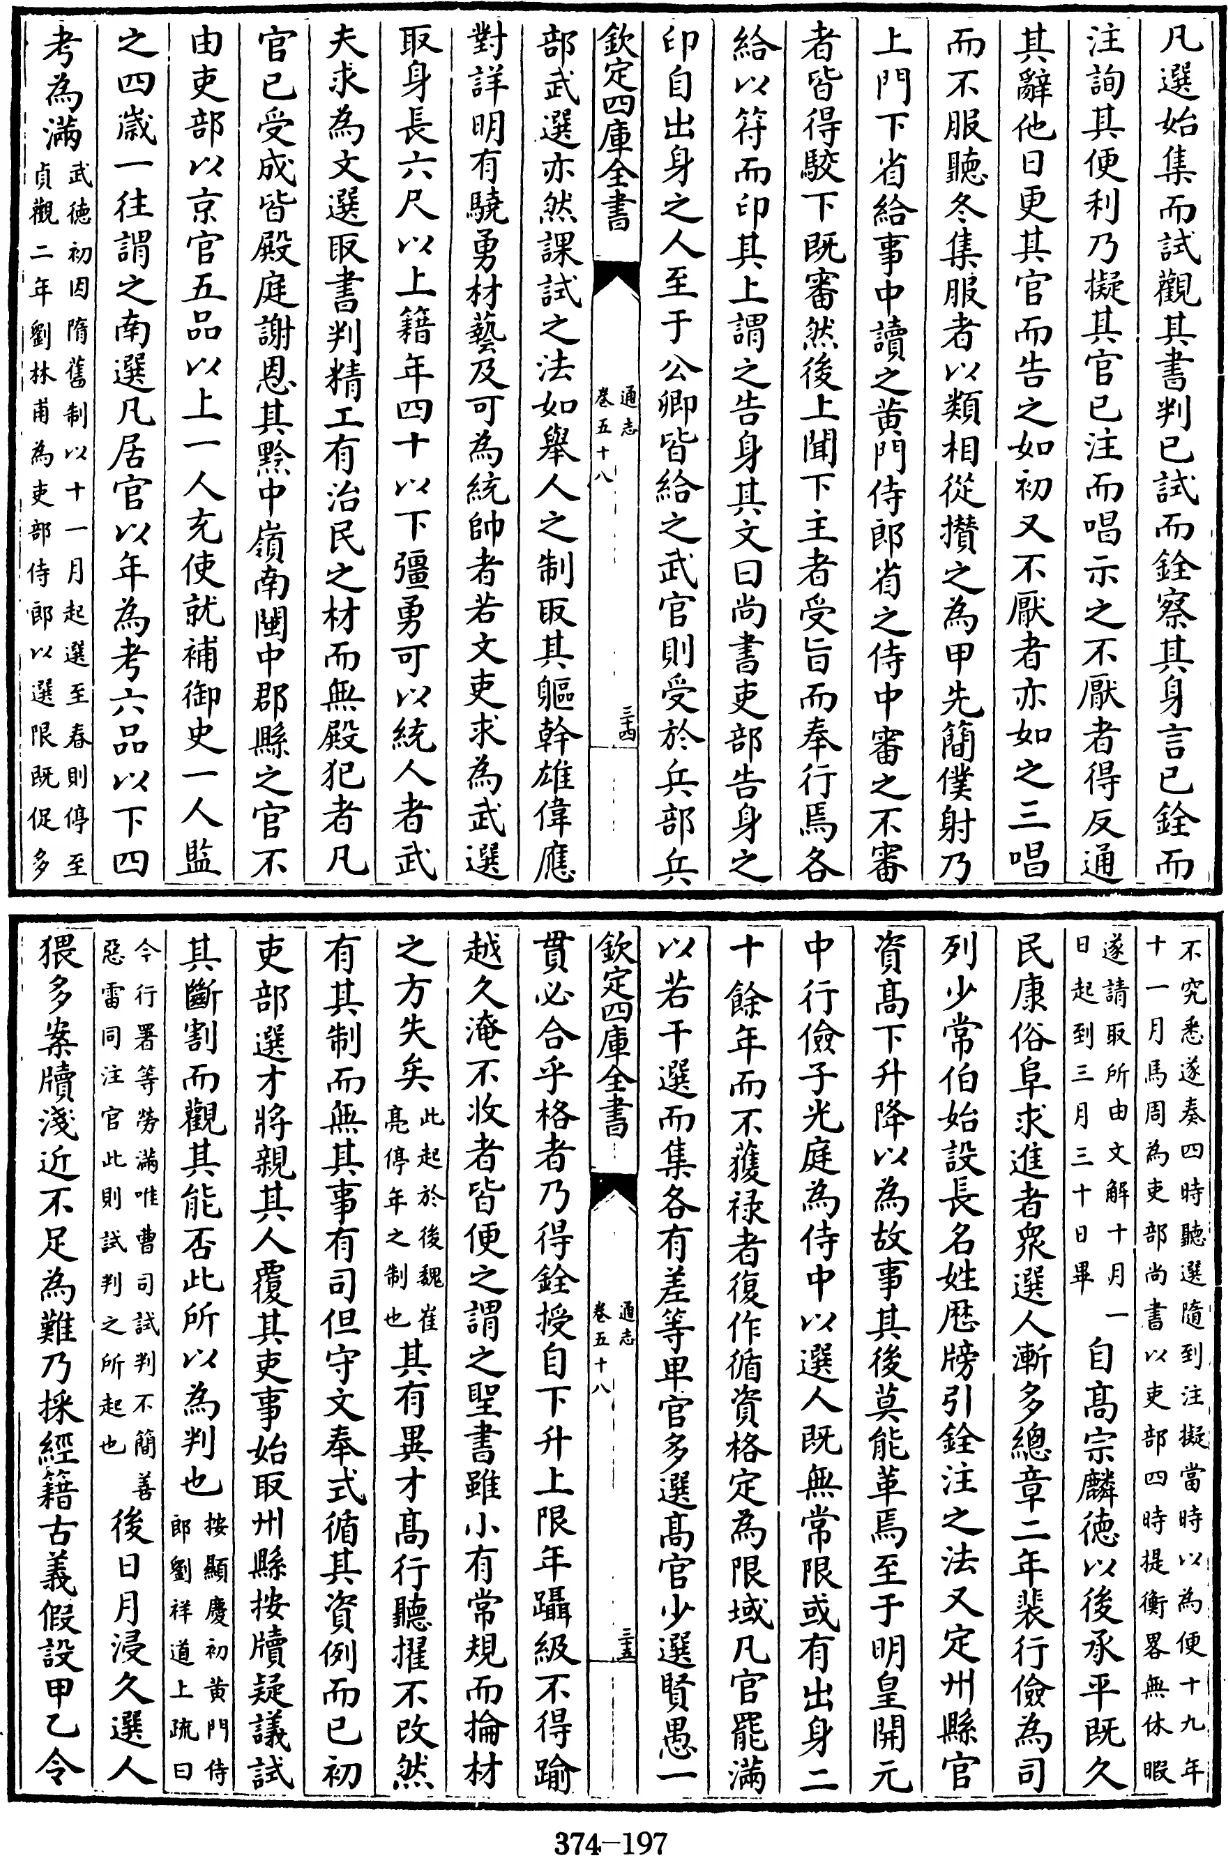 凡選始集而試觀其書判已試而銓察其身言已銓而
注詢其便利乃擬其官已注而唱示之不厭者得反通
其辭他日更其官而告之如初又不厭者亦如之三唱
而不服聽冬集服者以類相從攢之為甲先簡僕射乃
上門下省給事中讀之黄門侍郎省之侍中審之不審
者皆得駮下既審然後上聞下主者受旨而奉行焉各
給以符而印其上謂之告身其文曰尚書吏部告身之
印自出身之人至于公卿皆給之武官則受於兵部兵
欽定四庫全書
通志
卷五十八
三十四
部武選亦然課試之法如舉人之制取其軀幹雄偉應
對詳明有驍勇材藝及可為統帥者若文吏求為武選
取身長六尺以上籍年四十以下彊勇可以統人者武
夫求為文選取書判精工有治民之材而無殿犯者凡
官已受成皆殿庭謝恩其黔中嶺南閩中郡縣之官不
由吏部以京官五品以上一人充使就補御史一人監
之四歳一往謂之南選凡居官以年為考六品以下四
考為滿
武徳初因隋舊制以十一月起選至春則停至
貞觀二年劉林甫為吏部侍郎以選限既促多
不究悉遂奏四時聽選隨到注擬當時以為便十九年
十一月馬周為吏部尚書以吏部四時提衡畧無休暇
遂請取所由文解十月一
日起到三月三十日畢
自髙宗麟徳以後承平既久
民康俗阜求進者衆選人漸多總章二年裴行儉為司
列少常伯始設長名姓歴牓引銓注之法又定州縣官
資髙下升降以為故事其後莫能革焉至于明皇開元
中行儉子光庭為侍中以選人既無常限或有出身二
十餘年而不獲禄者復作循資格定為限域凡官罷滿
以若干選而集各有差等卑官多選髙官少選賢愚一
欽定四庫全書
通志
卷五十八
三十五
貫必合乎格者乃得銓授自下升上限年躡級不得踰
越久淹不收者皆便之謂之聖書雖小有常規而掄材
之方失矣
此起於後魏崔
亮停年之制也
其有異才髙行聽擢不改然
有其制而無其事有司但守文奉式循其資例而已初
吏部選才將親其人覆其吏事始取州縣按牘疑議試
其斷割而觀其能否此所以為判也
按顯慶初黄門侍
郎劉祥道上疏曰
今行署等勞滿唯曹司試判不簡善
惡雷同注官此則試判之所起也
後日月浸久選人
猥多案牘淺近不足為難乃採經籍古義假設甲乙令
374-197